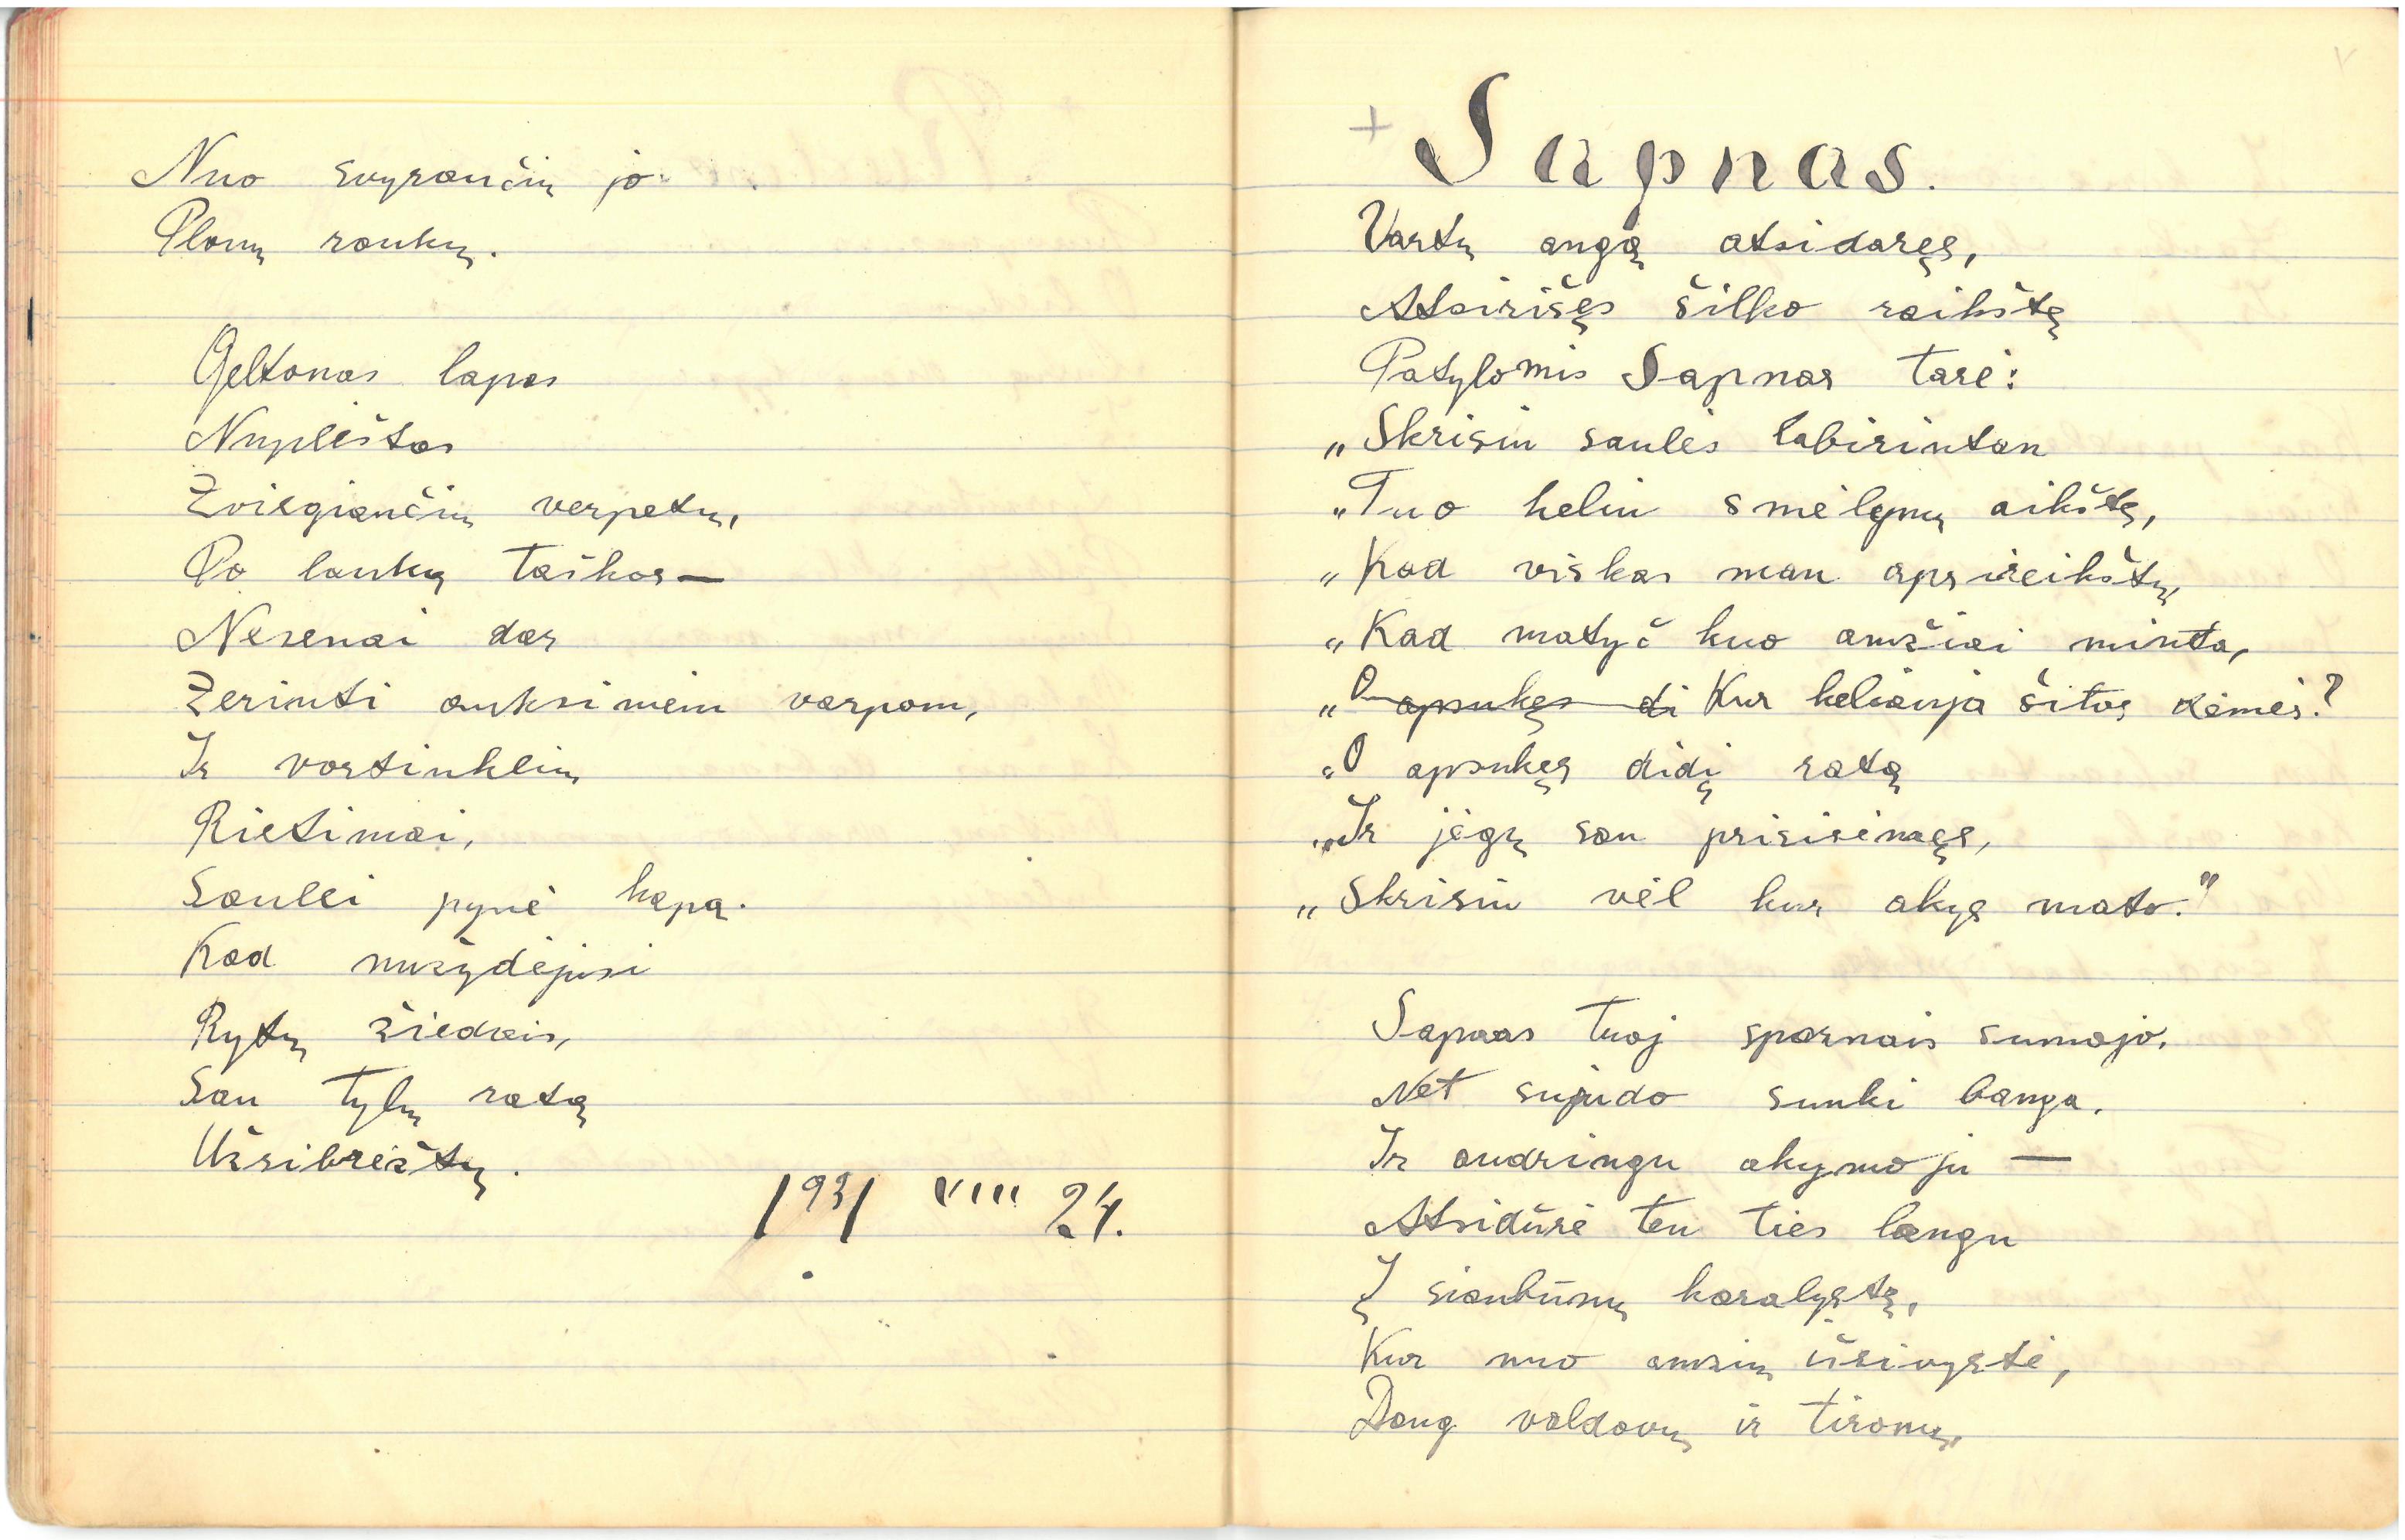 Nuo svyrančių jo
Plonų rankų.
Geltonas lapas
Nuplėštas
Žviegiančių verpetų,
Po lauką taškos—
Nesenai dar
Žerinti auksiniem varpam,
Ir vortinklių
Rietimai,
Saulei pynė kapą.
Kad nužydėjusi
Rytų žiedais,
Sau tylų ratą
Užsibrėžtų.
1931 VIII 24.
+ Sapnas.
Vartų angą atsidaręs,
Atsirišęs šilko raikštę
Patylomis Sapnas tarė:
„Skrisiu saulės labirintan
„Tuo keliu smėlynų aikštę,
„Kad viskas man apsireikštų,
„Kad matyč kuo amžiai minta,
„O apsukęs di Kur keliauja šitos žėmės?
„O apsukęs didį ratą
„Ir jėgų sau prisisėmęs,
„Skrisiu vėl kur akys mato."
Sapnas tuoj sparnais sumojo,
Net sujudo sunki banga.
Ir audringu akymoju —
Atsidūrė ten ties langu
Į siaubūnų karalystę,
Kur nuo amžių ūsivystė,
Daug valdovų ir tironų,